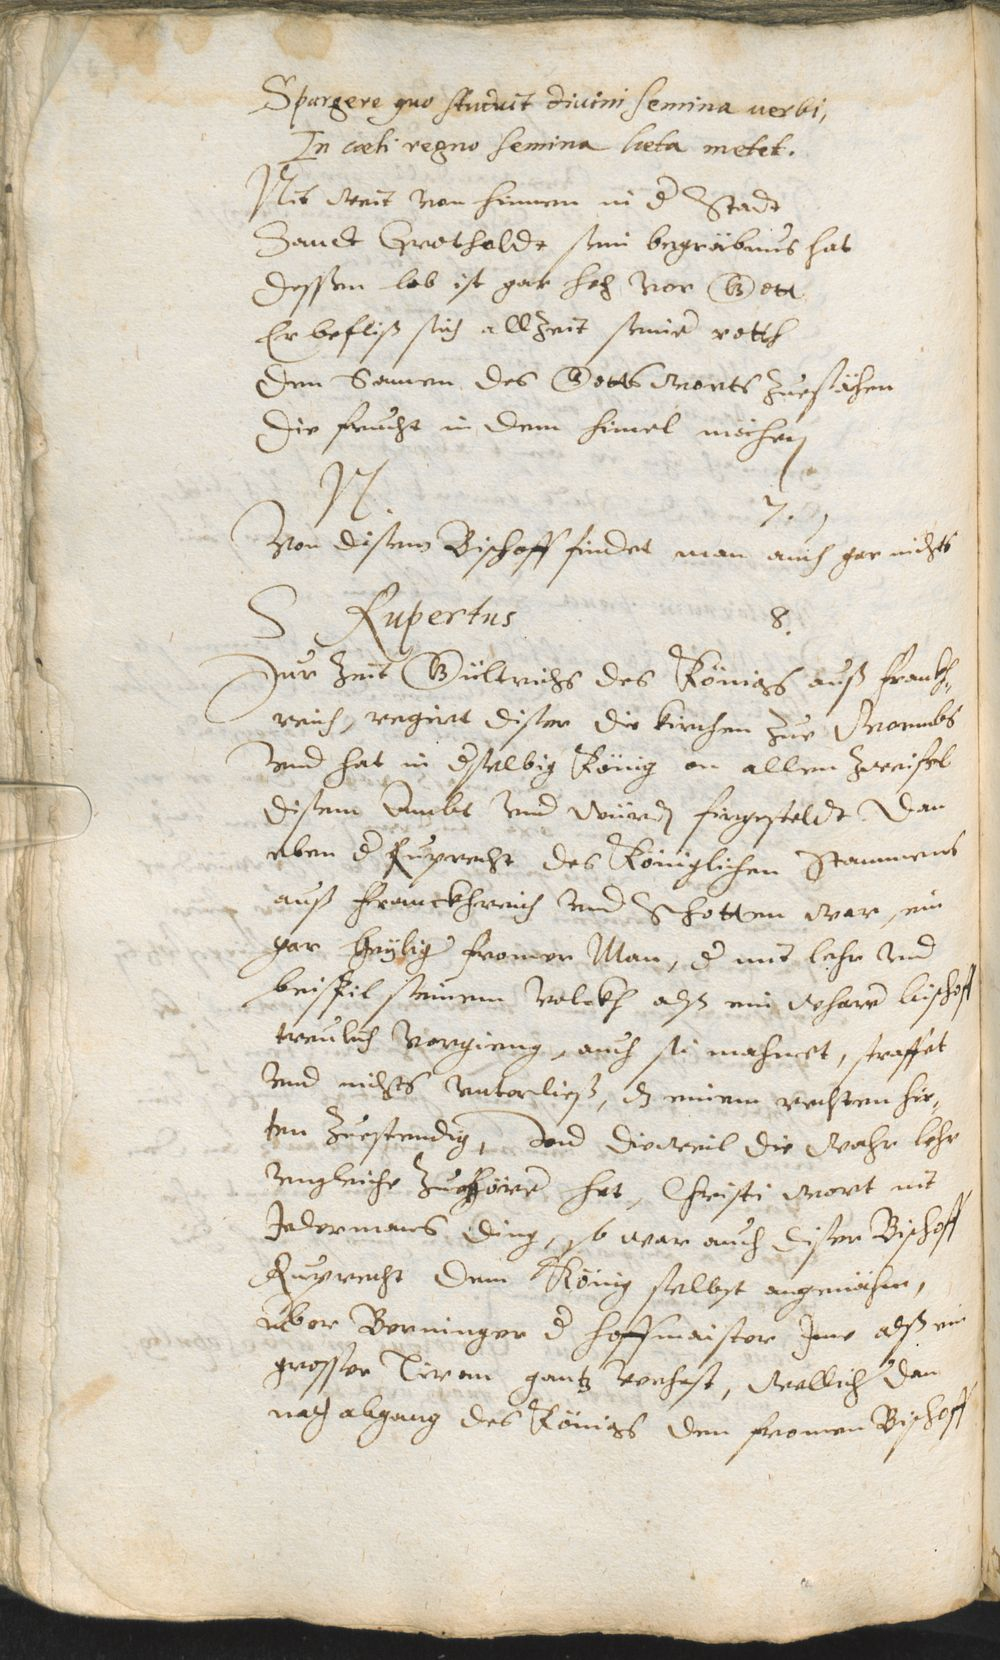 Spargere quo studuit divini semina verbi,
In cœli regno semina læta metet.
Nit weit von hinnen in d Stadt
Sanct Grotholdt sein begräbnus hat
dessen lob ist gar hoch vor Gott
Er befliß sich allzeit seiner rott
den Samen des Gotts worts zuesähen
die frucht in dem himel mähen
N. 7.
Von disem Bischoff findet man auch gar nichts
S Rupertus 8.
Zur Zeit Gültrichs des Königs auß Franckh-
reich, regirt diser die kirchen zue Wormbs
und hat in dselbig König on allen zweifel
disem Ambt und würd fürgesteldt dan
eben d Ruprecht des Königlichen Stammens
auß Franckhreich und Schotten war, ein
gar heylig fromer Man, d mit lehr und
beispil seinem volckh alß ein wharer bischoff
treulich vorgieng, auch sie mahnet, straffet
und nichts unterließ, dz einem rechten hir-
ten zuestendig, Und dieweil die wahr lehr
ungleiche zuehörer hat, Christi wort nit
Jedermans ding, so war auch diser Bischoff
Ruprecht dem König selbst angenähm,
aber Berninger d hoffmaister Ime alß ein
grosser Tirann gantz verhast, wellicher dan
nach abgang des Königs den fromen Bischoff